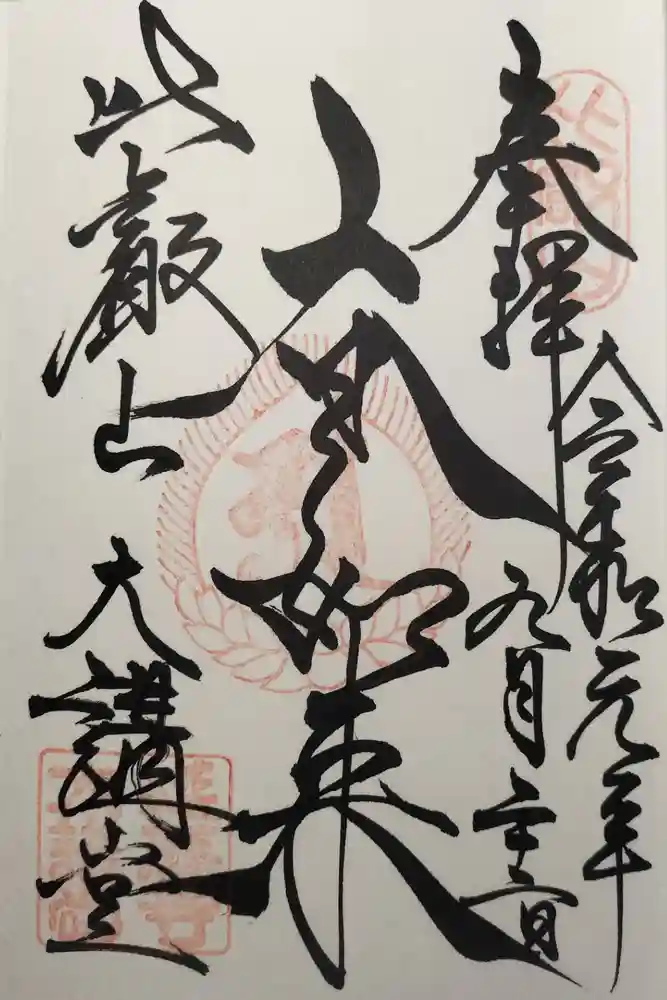 奉拝
令和元年
九月二十二日
大日如来
比叡山 大講堂